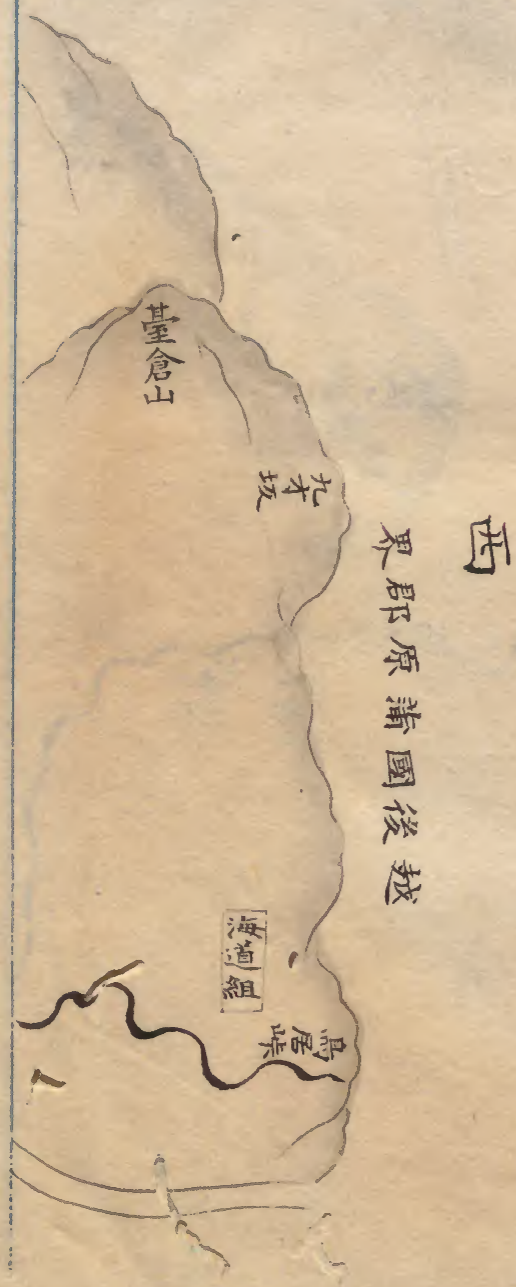 西
越後國蒲原郡界
臺倉山
九才坂
海道組
鳥居峠